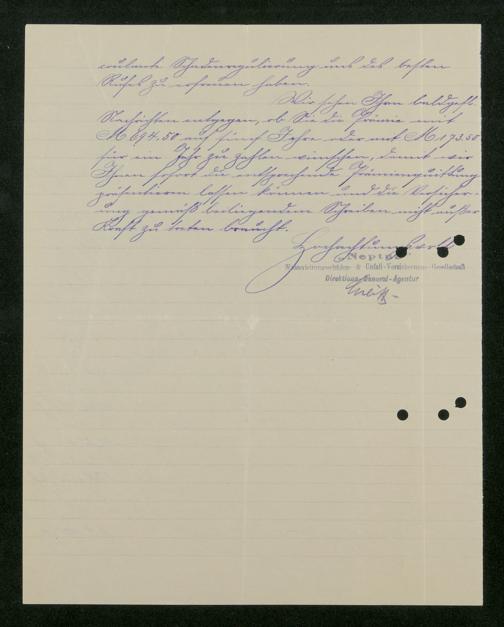 coulante Schadenregulierung und des besten
Rufes zu erfreuen haben.
Wir sehen Ihren baldgefl.
Nachrichten entgegen, ob Sie die Prämie mit
M 694.50 auf fünf Jahre oder mit M 173.50
für ein Jahr zu zahlen wünschen, damit wir
Ihnen sofort die entsprechende Prämienquittung
präsentieren lassen können und die Versicher-
ung gemäß beiliegendem Schreiben nicht außer
Kraft zu treten braucht.
Hochachtungsvoll
"Neptun"
Wasserleitungsschäden- & Unfall-Versicherungs-Gesellschaft
Direktions-General-Agentur